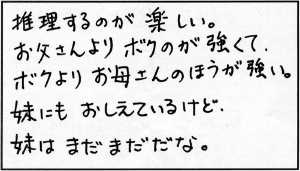 推理するのが 楽しい。
お父さんより ボクのが 強くて.
ボクより お母さんのほうが 強い。
妹にも おしえているけど.
妹は まだまだだな。